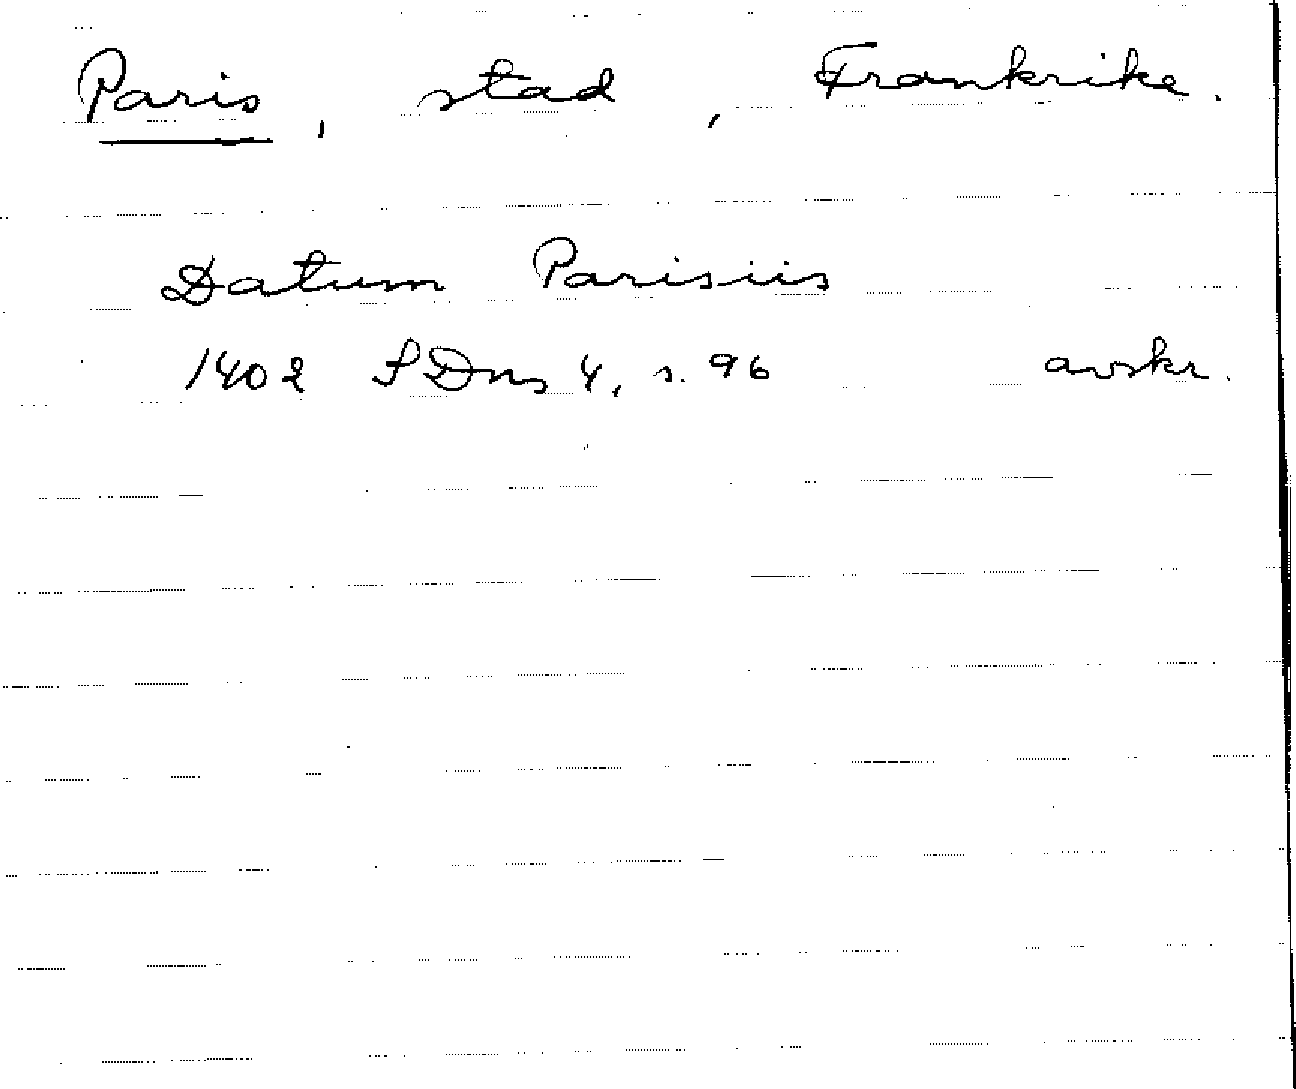 Paris, stad, Frankrike.
Datum Parisiis
1402 SDns 4, s. 96 avskr.